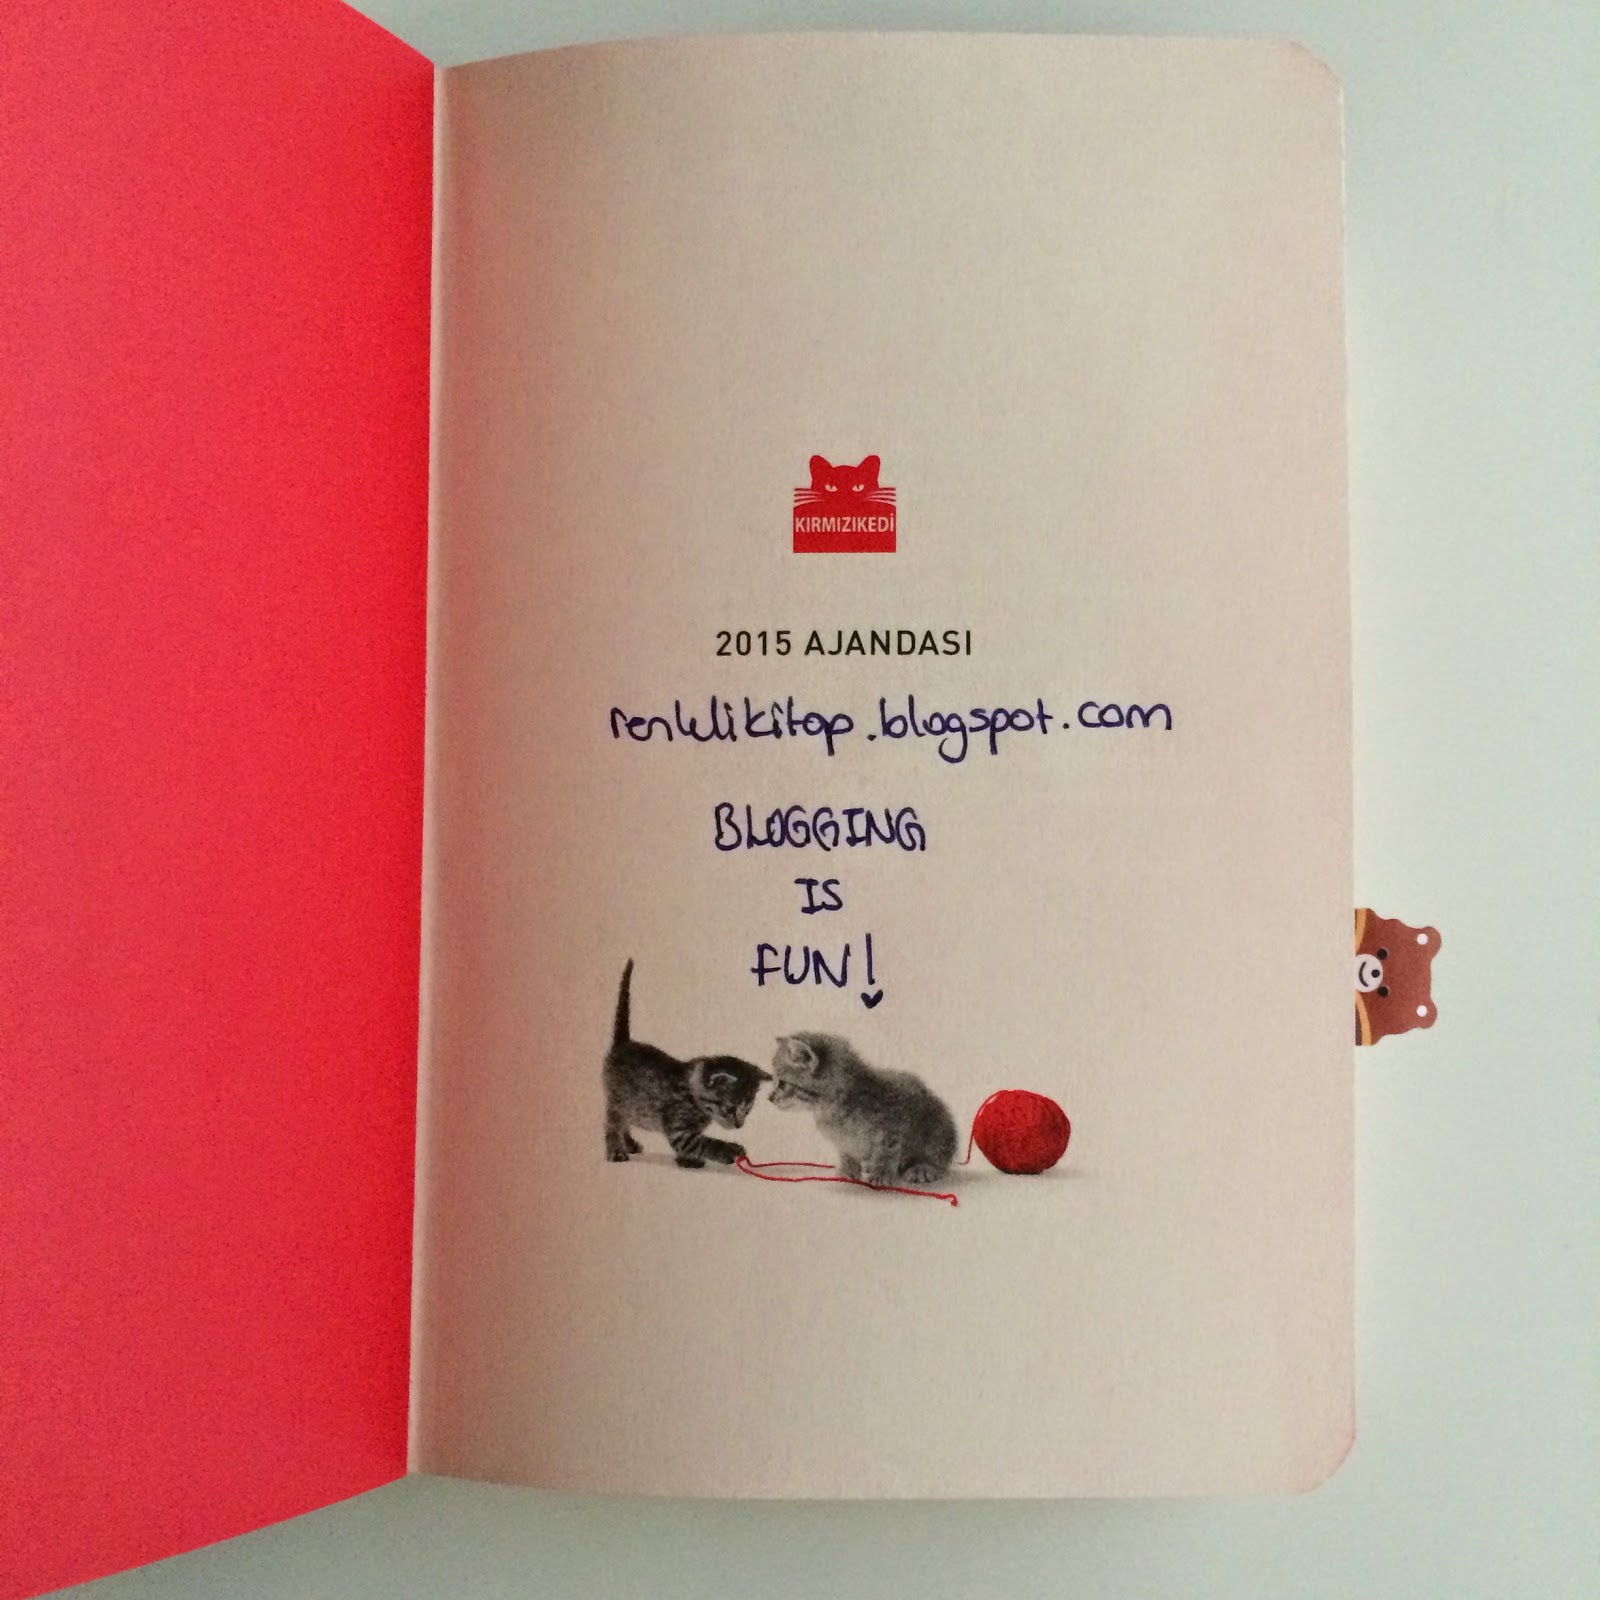 KIRMIZIKEDİ
2015 AJANDASI
renklikitap.blogspot.com
BLOGGING
IS
FUN!